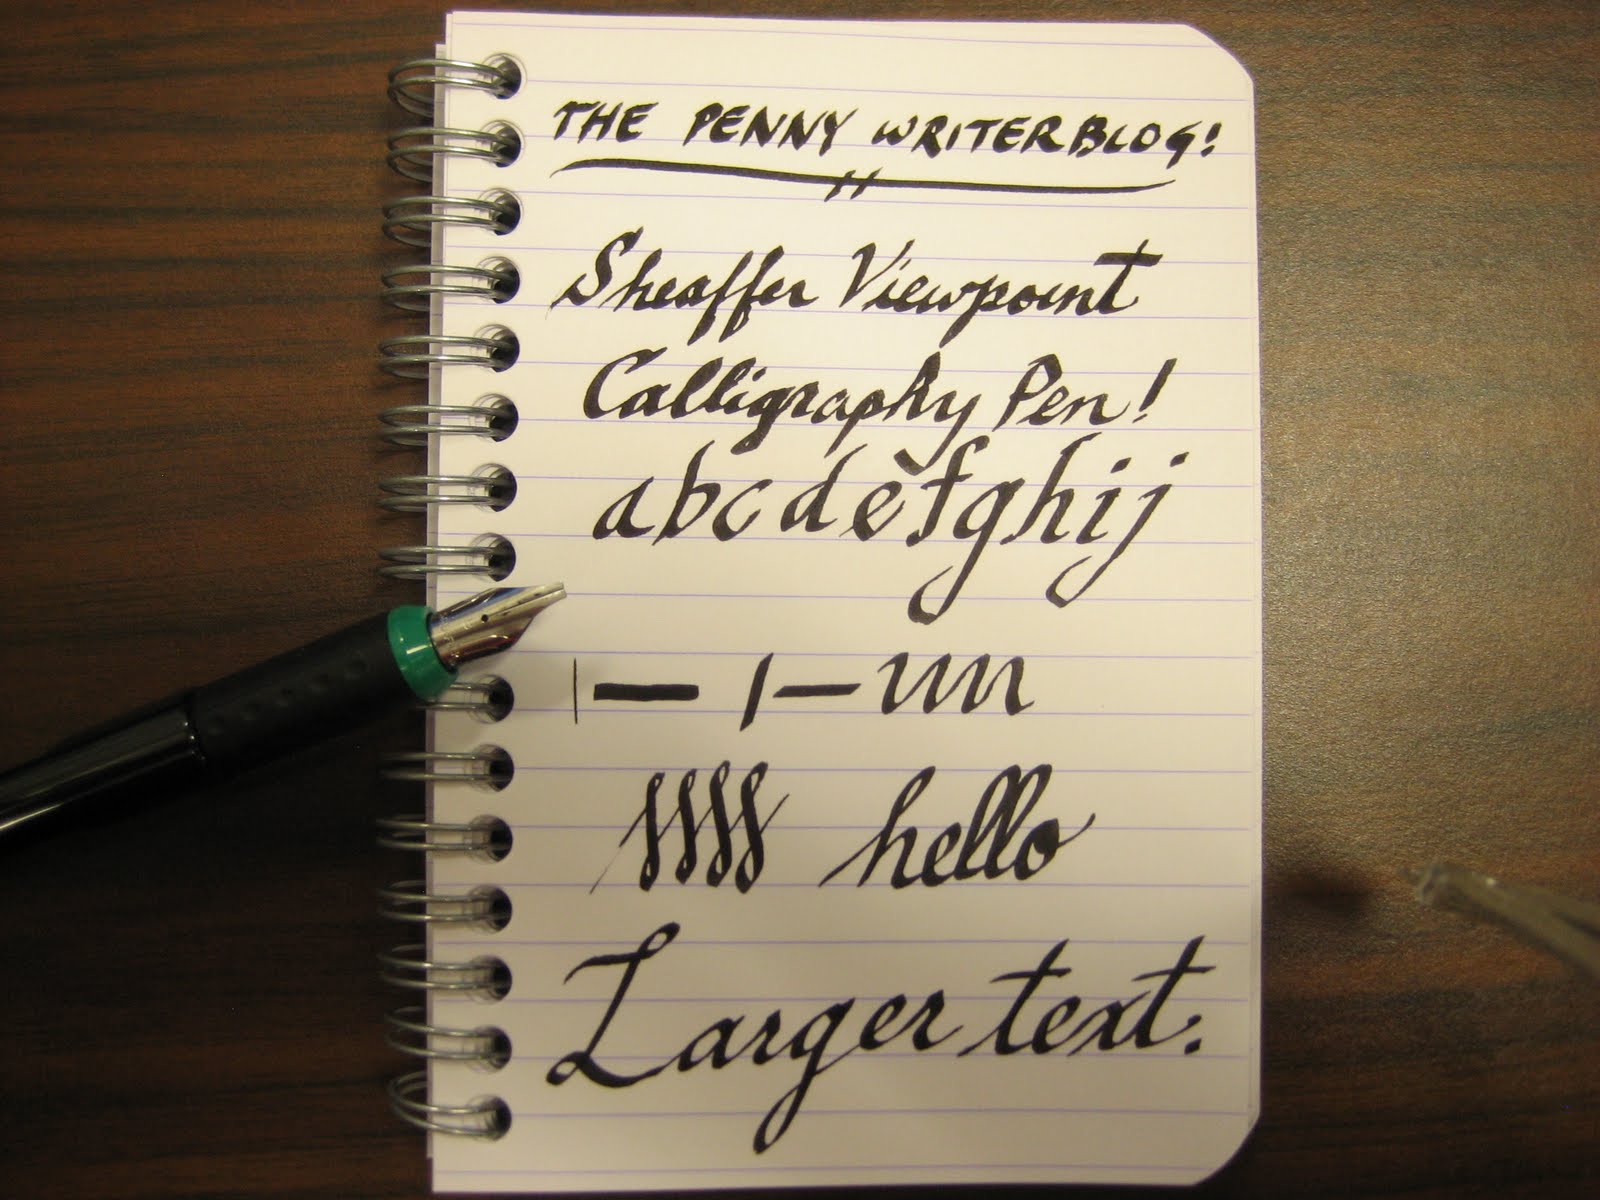 THE PENNY WRITER BLOG!
Sheaffer Viewpoint
Calligraphy Pen!
abcdefghij
hello
Larger text.